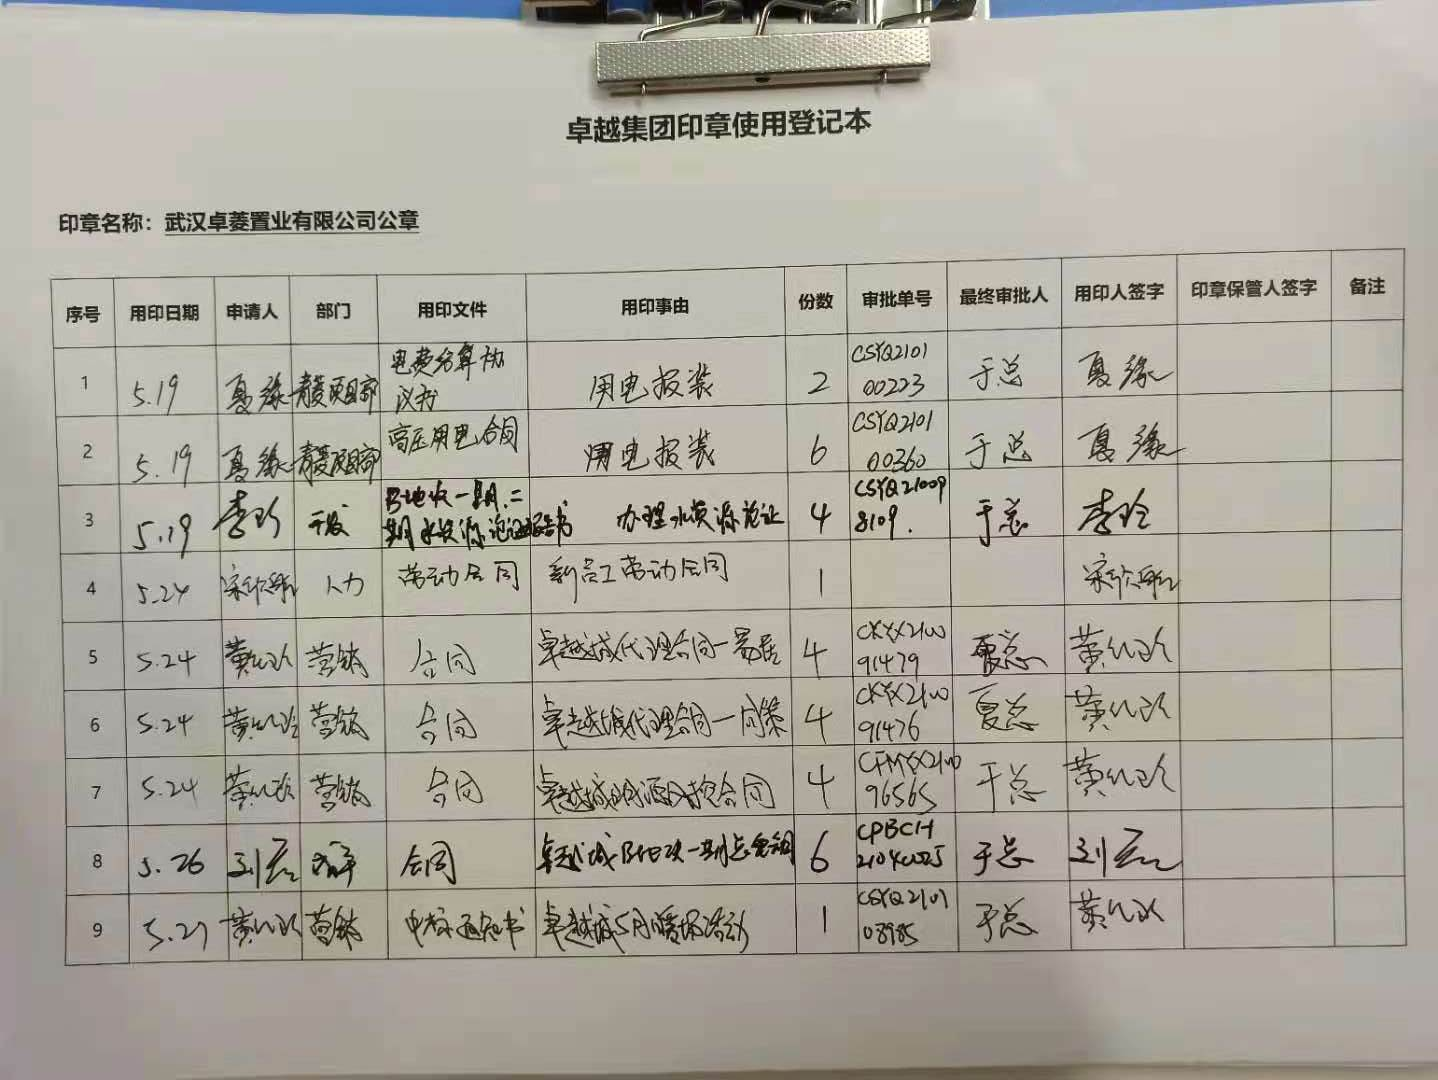 卓越集团印章使用登记本
印章名称：武汉卓菱置业有限公司公章
序号 用印日期 申请人 部门 用印文件 用印事由 份数 审批单号 最终审批人 用印人签字 印章保管人签字 备注
1 5.19 夏缘 青菱项目部 电费结算协议书 用电报装 2 CSYQ210100223 于总 夏缘
2 5.19 夏缘 青菱项目部 高压用电合同 用电报装 6 CSYQ210100360 于总 夏缘
3 5.19 李玲 开发 B地块一期、二期水资源论证报告书 办理水资源论证 4 CSYQ210098109. 于总 李玲
4 5.24 人力 劳动合同 新员工劳动合同 1
5 5.24 营销 合同 卓越城代理合同一易居 4 CKYX210091479 夏总
6 5.24 营销 合同 卓越城代理合同一同策 4 CKYX210091476 夏总
7 5.24 营销 合同 卓越城 合同 4 CFMYX210096565 于总
8 5.26 合同 卓越城B地块一期总包合同 6 CPBCH 于总
9 5.27 营销 中标通知书 卓越城5月暖场活动 1 CSYQ210108985 于总